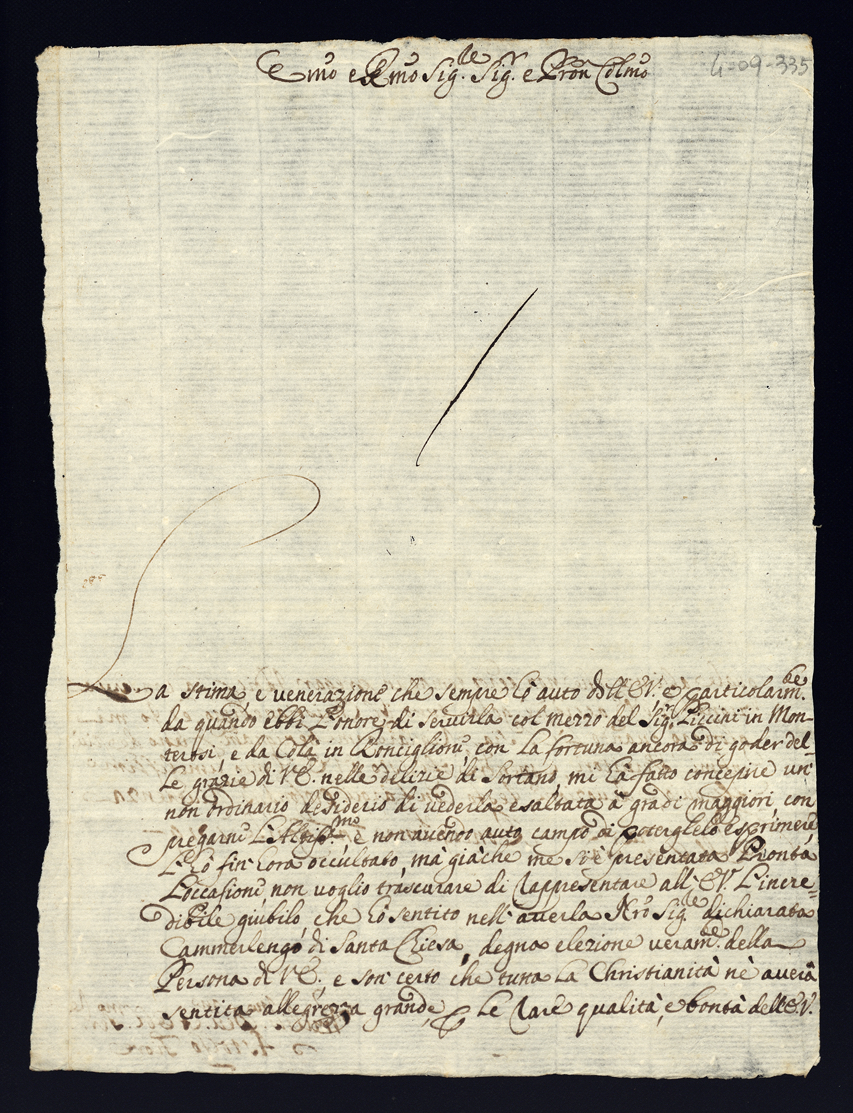 4-09-335
Emo e Rmo Sig.le Sig.r e Pron Colmo
La stima, e venerazione che sempre hò auto dell'E.V. e particolarm.te
da quando ebbi l'onore di seruirla col mezzo del Sig.r Piccini in Mon-
terosi, e da Colà in Ronciglione con la fortuna ancora di goder del-
le grazie di V.E. nelle delizie di Soriano, mi hà fatto concepire un
non ordinario desiderio di uederla esaltata à gradi maggiori con
pregarne l'Altiss.mo e non auendo auto campo di poterglelo esprimere
l'hò fin'hora occultato, mà giàche me s'è presentata pronta
l'occasione non voglio trascurare di rappresentare all'E.V. l'incre=
dibile giubilo che hò sentito nell'auerla Nro Sig.le dichiarata
Cammerlengo di Santa Chiesa, degna elezione veram.te della
Persona di V.E., e son certo che tutta la Christianità nè auerà
sentita allegrezza grande, p le rare qualità, e bontà dell'E.V.